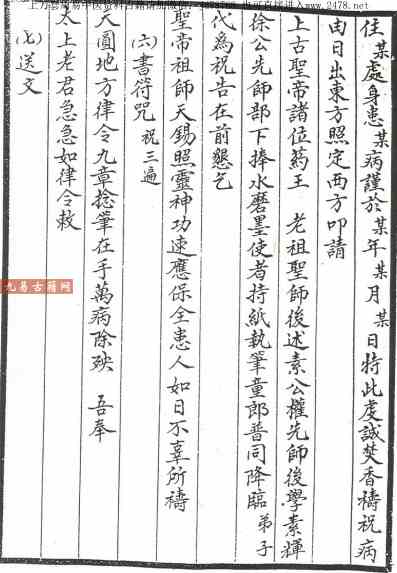 住某處身患某病謹於某年某月某日特此虔誠焚香禱祝病
由日出東方照定西方叩請
上古聖帝諸位葯王 老祖聖師後述素公權先師後學素輝
徐公先師部下捧水磨墨使者持紙執筆童郎普同降臨 弟子
代為祝告在前懇乞
聖帝祖師天錫照靈神功速應保全患人如日不辜所禱
(六)書符咒 祝三遍
天圓地方律令九章捻筆在手萬病除殃 吾奉
太上老君急急如律令敕
(七)送文
九易古籍网
www.2478.net